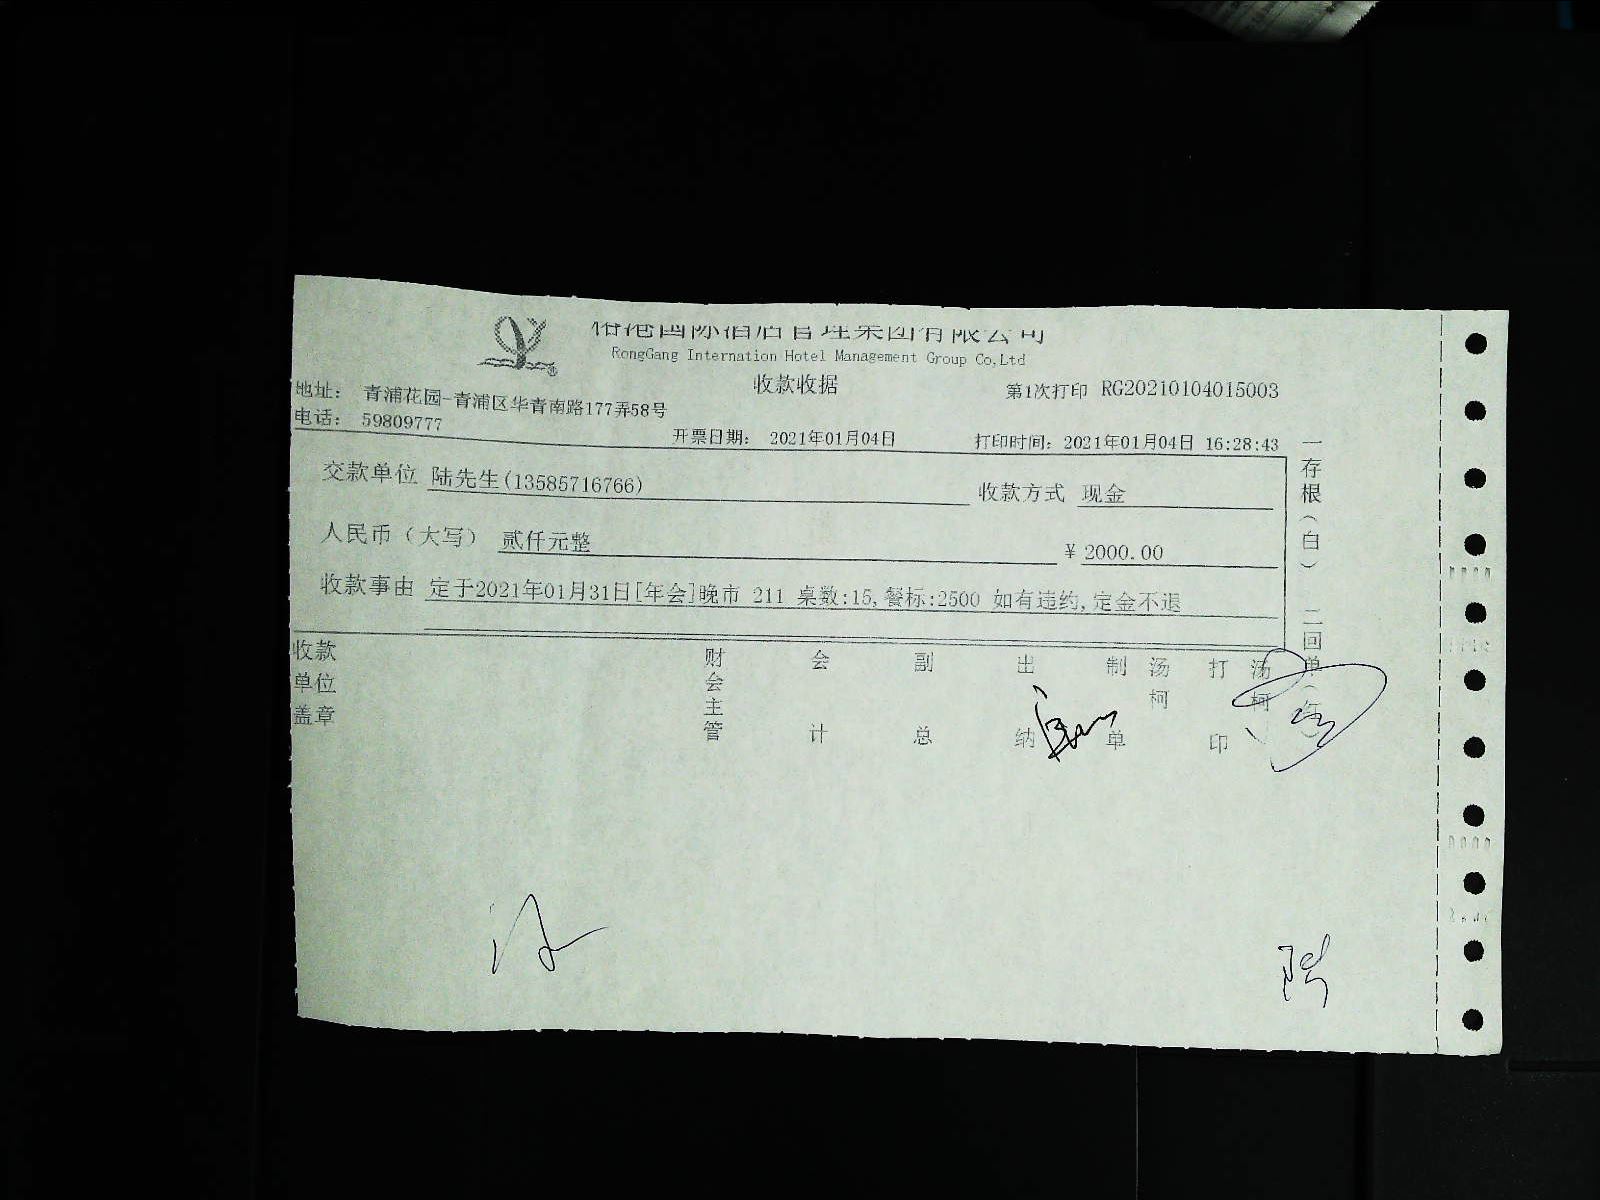 港国际酒店管理集团有限公司
RongGang Internation Hotel Management Group Co,Ltd
收款收据
第1次打印 RG20210104015003
地址： 青浦花园-青浦区华青南路177弄58号
电话： 59809777
开票日期： 2021年01月04日
打印时间：2021年01月04日 16:28:43
交款单位 陆先生(13585716766)
收款方式 现金
人民币（大写） 贰仟元整
¥ 2000.00
收款事由 定于2021年01月31日[年会]晚市 211 桌数:15,餐标:2500 如有违约,定金不退
收款单位盖章
财会主管
会计
副总
出纳
制单
汤柯
打印
汤柯
一存根（白） 二回单